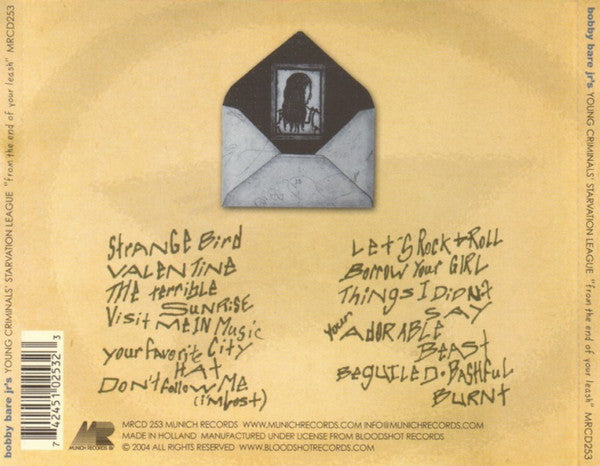 bobby bare jr's YOUNG CRIMINALS' STARVATION LEAGUE "from the end of your leash" MRCD253
STRANGE BIRD
VALENTINE
THE TERRIBLE
SUNRISE
VISIT ME IN MUSIC
CITY
YOUR FAVORITE
HAT
DON'T FOLLOW ME
(I'm Lost)
LET'S ROCK & ROLL
BORROW YOUR GIRL
THINGS I DIDN'T
SAY
YOUR ADORABLE
BEAST
BEGUILED · BASHFUL
BURNT
7 42451 02532 3
MR
MUNICH RECORDS
MRCD 253 MUNICH RECORDS WWW.MUNICHRECORDS.COM INFO@MUNICHRECORDS.COM
MADE IN HOLLAND MANUFACTURED UNDER LICENSE FROM BLOODSHOT RECORDS
© 2004 ALL RIGHTS RESERVED WWW.BLOODSHOTRECORDS.COM
bobby bare jr's YOUNG CRIMINALS' STARVATION LEAGUE "from the end of your leash" MRCD253